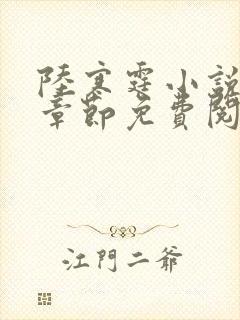 陸寒霆小說
章節免費閱
江門二爺